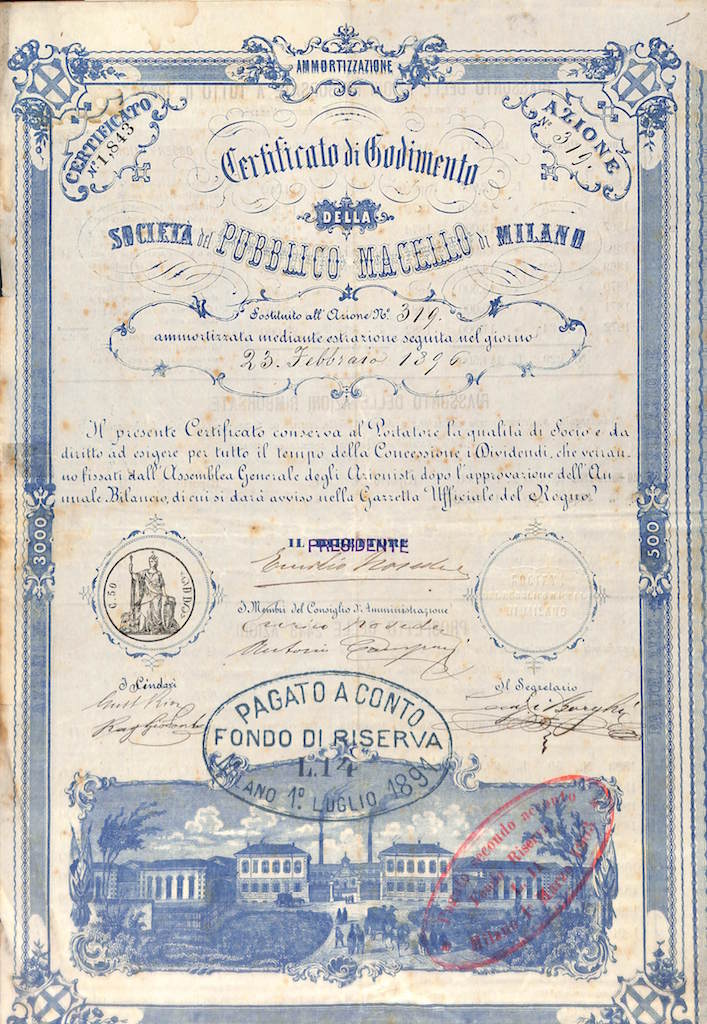 AMMORTIZZAZIONE
CERTIFICATO
N.º 1,843
AZIONE
N.º 319.
Certificato di Godimento
DELLA
SOCIETÀ del PUBBLICO MACELLO di MILANO
Sostituito all'Azione Nº 319.
ammortizzata mediante estrazione seguita nel giorno
23. Febbraio 1896
Il presente Certificato conserva al Portatore la qualità di Socio e da
diritto ad esigere per tutto il tempo della Concessione i Dividendi, che verran-
no fissati dall'Assemblea Generale degli Azionisti dopo l'approvazione dell'An-
nuale Bilancio, di cui si darà avviso nella Gazzetta Ufficiale del Regno.
3000
500
IL
PRESIDENTE
C. 50
I Membri del Consiglio d'Amministrazione
I Sindaci
Il Segretario
PAGATO A CONTO
FONDO DI RISERVA
L. 14
MILANO 1º LUGLIO 1891
secondo acconto
Fondo Riserva
Milano 1º Marzo